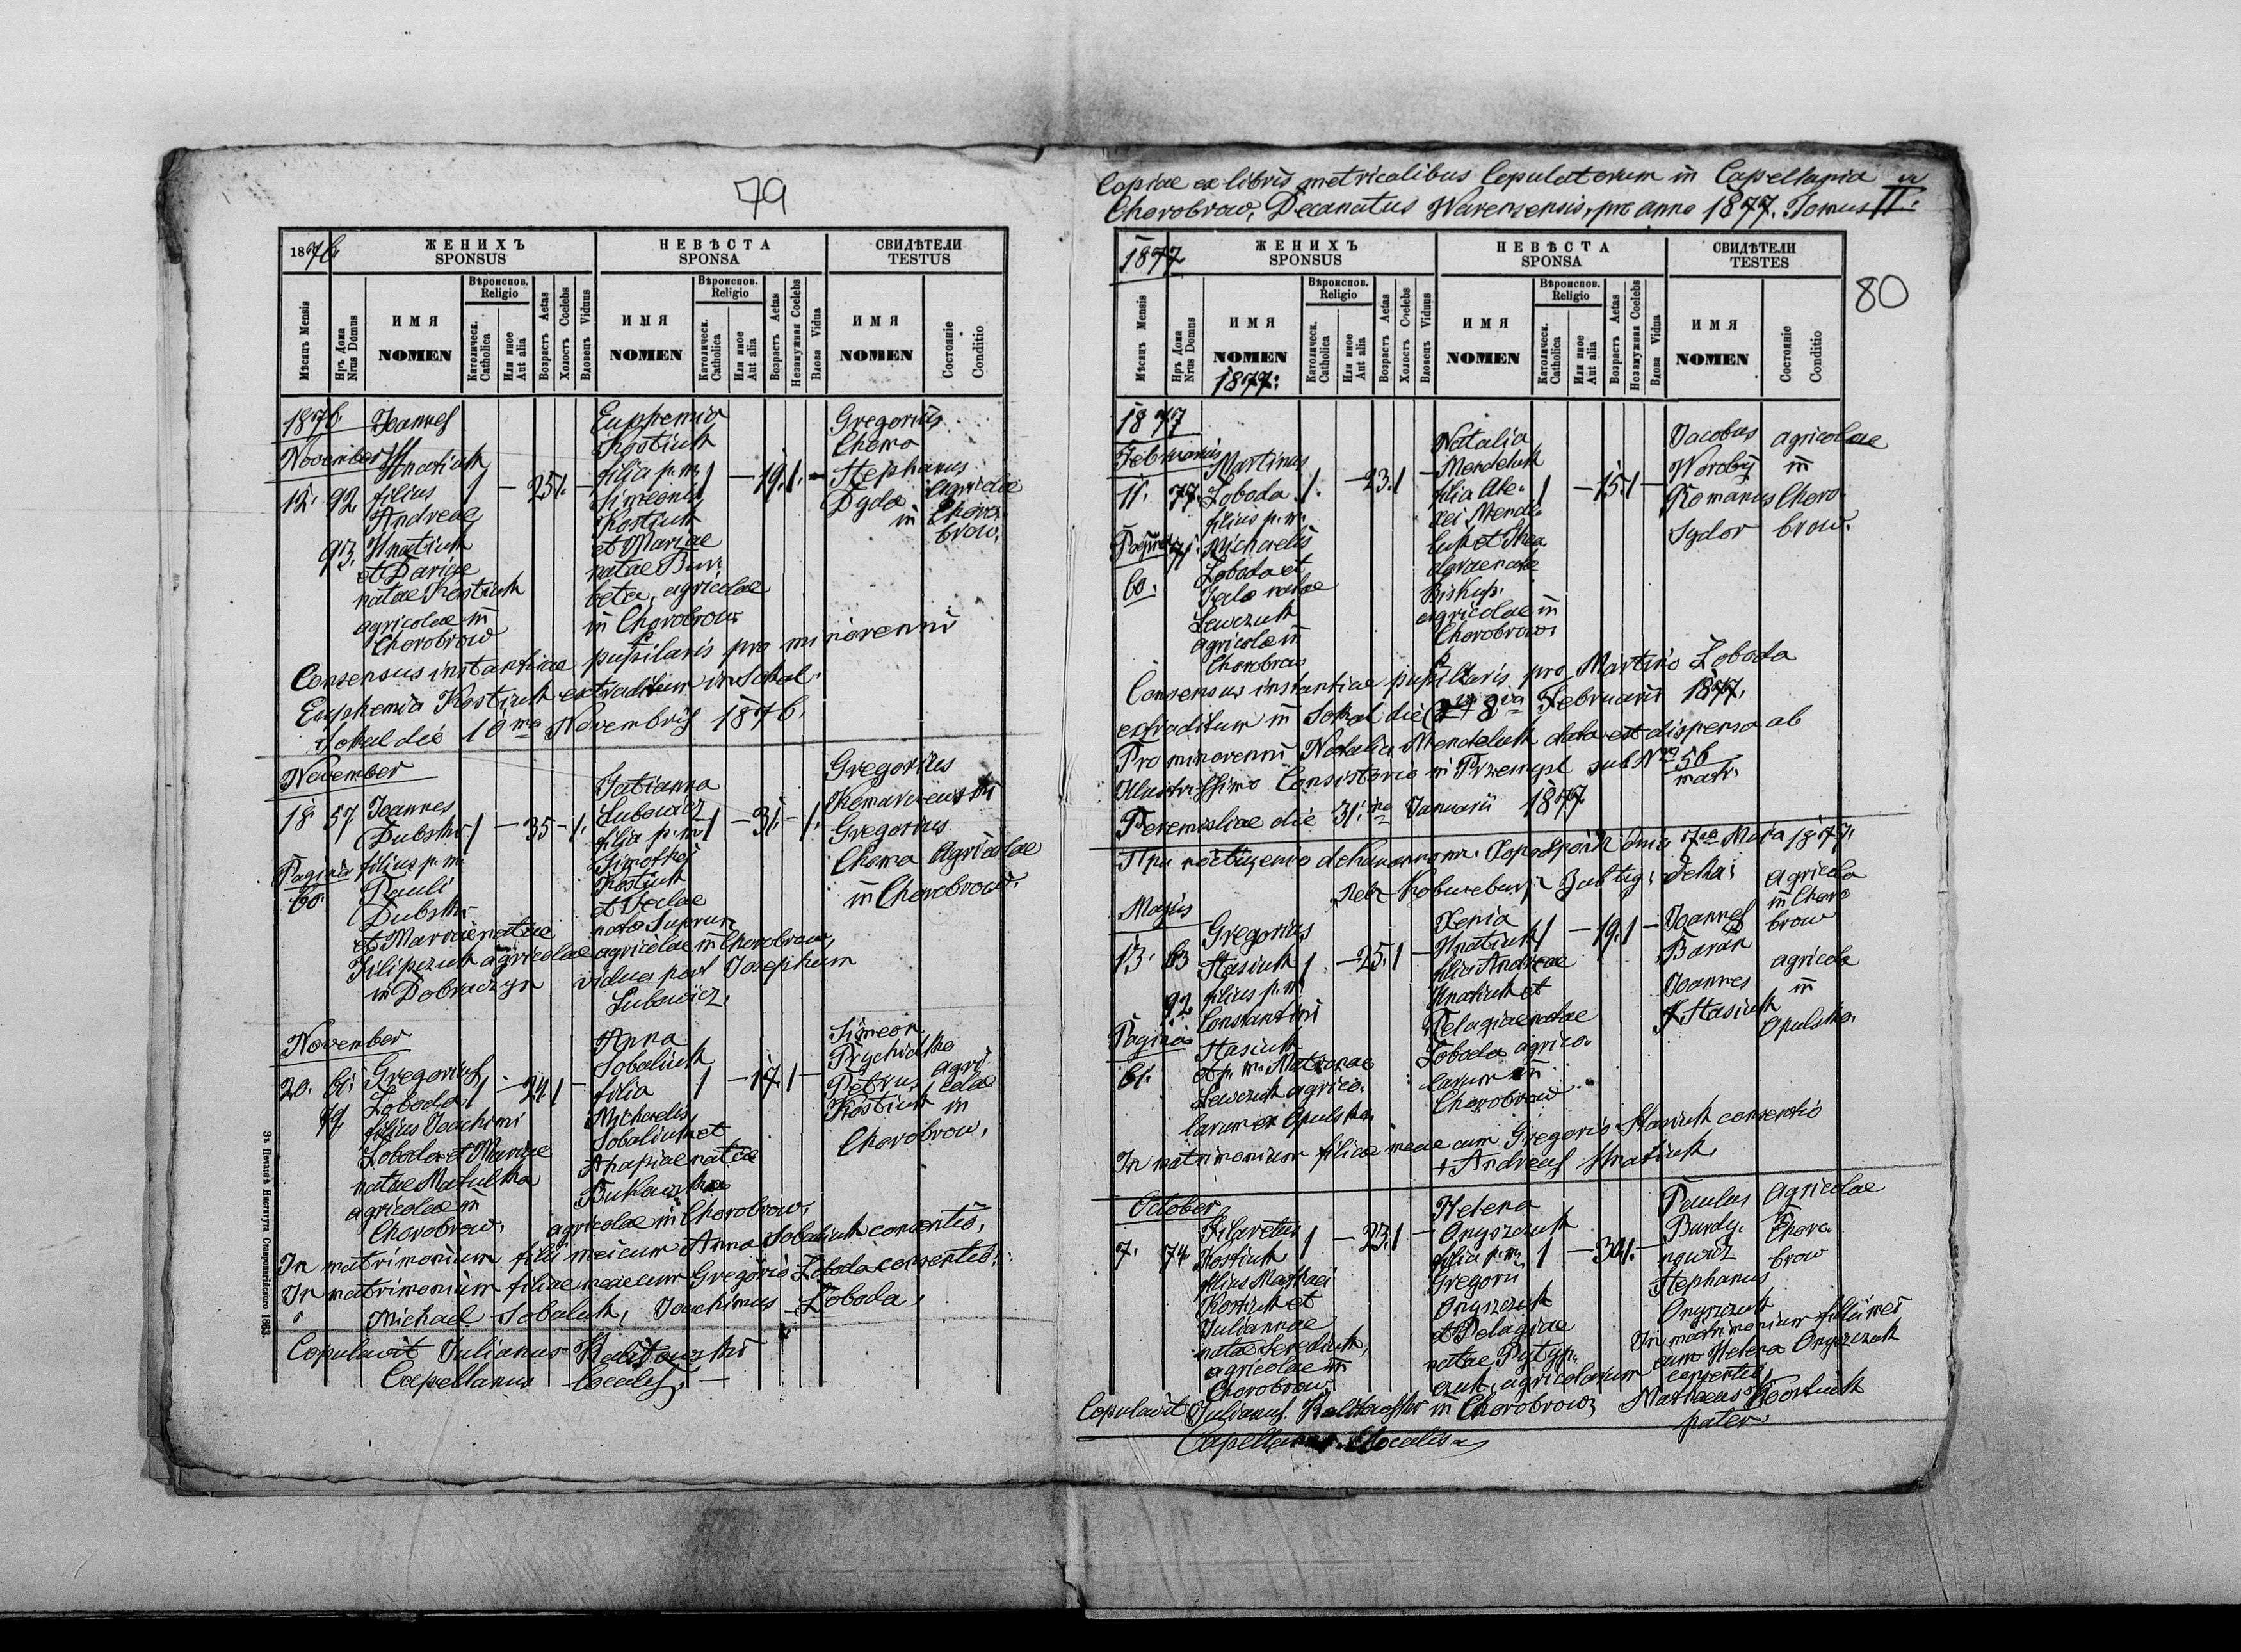 79
1876
ЖЕНИХЪ
SPONSUS
НЕВѢСТА
SPONSA
СВИДѢТЕЛИ
TESTUS
Мѣсяць Mensis
Нръ Дома
Nrus Domus
ИМЯ
NOMEN
Вѣроиспов.
Religio
Католическ.
Catholica
Или иное
Aut alia
Возрастъ Aetas
Холостъ Coelebs
Вдовецъ Viduus
ИМЯ
NOMEN
Вѣроиспов.
Religio
Католическ.
Catholica
Или иное
Aut alia
Возрастъ Aetas
Незамужная Coelebs
Вдова Vidua
ИМЯ
NOMEN
Состояніе
Conditio
1876
November
12. 92.
93.
Joannes
Hnatiuk
filius
Andreae
Hnatiuk
et Dariae
natae Kostiuk
agricolae in
Chorobrow
1 — 25 1. —
Euphemia
Kostiuk
filia p. m.
Simeonis
Kostiuk
et Mariae
natae
beta, agricolae
in Chorobrow
1 — 19. 1. —
Gregorius
Choma
Stephanus
Dyda
agricolae
in Choro-
brow.
Consensus instantiae pupilaris pro minorenni
Euphemia Kostiuk extraditum in Sokal.
Sokal die 10ma Novembris 1876.
November
18. 57.
Pagina
60.
Joannes
Dubski
filius p. m.
Pauli
Dubski
et Mariae natae
Filipczuk agricolae
in Dobraczyn
1 — 35 — 1.
Tatianna
Lubowicz
filia p. m.
Timothei
Kostiuk
et Teclae
nata Suprun
agricolae in Chorobrow,
vidua post Josephum
Lubowicz.
1 — 31. — 1.
Gregorius
Gregorius
Choma agricolae
in Chorobrow.
November
20. 61.
79.
Gregorius
Loboda
filius Joachimi
Loboda et Mariae
natae Matulka
agricolae in
Chorobrow.
1 — 24 1 —
Anna
Sobaliuk
filia
Michaelis
Sobaliuk et
Ahapiae natae
agricolae in Chorobrow,
1 — 17. 1 —
Simeon
Petrus
Kostiuk
agri
colae
in
Chorobrow,
In matrimonium filii mei cum Anna Sobaliuk consentio,
In matrimonium filiae meae cum Gregorio Loboda consentio.
Michael Sobaluk, Joachimus Loboda,
Copulavit Julianus
Capellanus localis. —
Зъ Печатнѣ Института Ставропигійского 1863.
Copiae ex libris metricalibus Copulatorum in Capellania
Chorobrow, Decanatus Warensensis, pro anno 1877. Tomus II.
80
1877
ЖЕНИХЪ
SPONSUS
НЕВѢСТА
SPONSA
СВИДѢТЕЛИ
TESTES
Мѣсяць Mensis
Нръ Дома
Nrus Domus
ИМЯ
NOMEN
1877:
Вѣроиспов.
Religio
Католическ.
Catholica
Или иное
Aut alia
Возрастъ Aetas
Холостъ Coelebs
Вдовецъ Viduus
ИМЯ
NOMEN
Вѣроиспов.
Religio
Католическ.
Catholica
Или иное
Aut alia
Возрастъ Aetas
Незамужная Coelebs
Вдова Vidua
ИМЯ
NOMEN
Состояніе
Conditio
1877
Februarius
11. 77.
71.
Pagina
60.
Martinus
Loboda
filius p. m.
Michaelis
Loboda et
Teclae natae
Lewczuk
agricola in
Chorobrow
1. — 23. 1 —
Natalia
Mendeluk
filia Ale-
xei Mende-
luk et Theo-
dorae natae
Biskup.
agricolae in
Chorobrow
1 — 15. 1 —
Jacobus
Worobij
Romanus
Sydor
agricolae
in
Choro-
brow.
Consensus instantiae pupillaris pro Martino Loboda
extraditum in Sokal die 8va Februarii 1877.
Pro minorenni Natalia Mendeluk data est dispensa ab
Illustrissimo Consistorio in Przemysl sub Nro 56
matr.
Peremisliae die 31. ma Januarii 1877
Маіа 1877.
Majus
13. 63
92
Pagina
61.
Gregorius
Stasiuk
filius p. m.
Constantini
Stasiuk
et p. m. Matronae
Lewczuk agrico-
larum ex Opulsko.
1. — 25. 1 —
Xenia
Hnatiuk
filia Andreae
Hnatiuk et
Pelagiae natae
Loboda agrico-
larum in
Chorobrow
1 — 19. 1 —
Joannes
Baran
Joannes
Stasiuk
agricola
in Choro
brow
agricola
in
Opulsko.
In matrimonium filiae meae cum Gregorio Stasiuk consentio
+ Andreas Hnatiuk,
October
7. 74
Filaretus
Kostiuk
filius Mathaei
Kostiuk et
Juliannae
natae Serediuk,
agricolae in
Chorobrow.
1 — 23. 1 —
Helena
Onyszczuk
filia p. m.
Gregorii
Onyszczuk
et Pelagiae
natae Pytyp-
czuk, agricolarum
1 — 30 1. —
Paulus
Burdy-
nowicz
Stephanus
Onyszczuk
agricolae
Choro-
brow
In matrimonium filii mei
cum Helena Onyszczuk
consentio
Mathaeus Kostiuk
pater.
Copulavit Julianus in Chorobrow
Capellanus localis